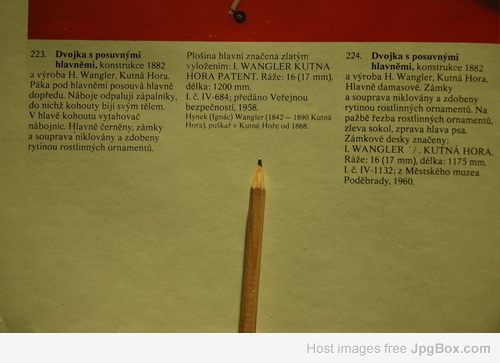 223. Dvojka s posuvnými
hlavněmi, konstrukce 1882
a výroba H. Wangler, Kutná Hora.
Páka pod hlavněmi posouvá hlavně
dopředu. Náboje odpalují zápalníky,
do nichž kohouty bijí svým tělem.
V hlavě kohoutu vytahovač
nábojnic. Hlavně černěny, zámky
a souprava niklovány a zdobeny
rytinou rostlinných ornamentů.
Plošina hlavní značena zlatým
vyložením: I. WANGLER KUTNA
HORA PATENT. Ráže: 16 (17 mm),
délka: 1200 mm.
I. č. IV-684; předáno Veřejnou
bezpečností, 1958.
Hynek (Ignác) Wangler (1842 — 1890 Kutná
Hora), puškař v Kutné Hoře od 1868.
224. Dvojka s posuvnými
hlavněmi, konstrukce 1882
a výroba H. Wangler, Kutná Hora.
Hlavně damasové. Zámky
a souprava niklovány a zdobeny
rytinou rostlinných ornamentů. Na
pažbě řezba rostlinných ornamentů,
zleva sokol, zprava hlava psa.
Zámkové desky značeny:
I. WANGLER / KUTNÁ HORA.
Ráže: 16 (17 mm), délka: 1175 mm.
I. č. IV-1132; z Městského muzea
Poděbrady, 1960.
Host images free JpgBox.com